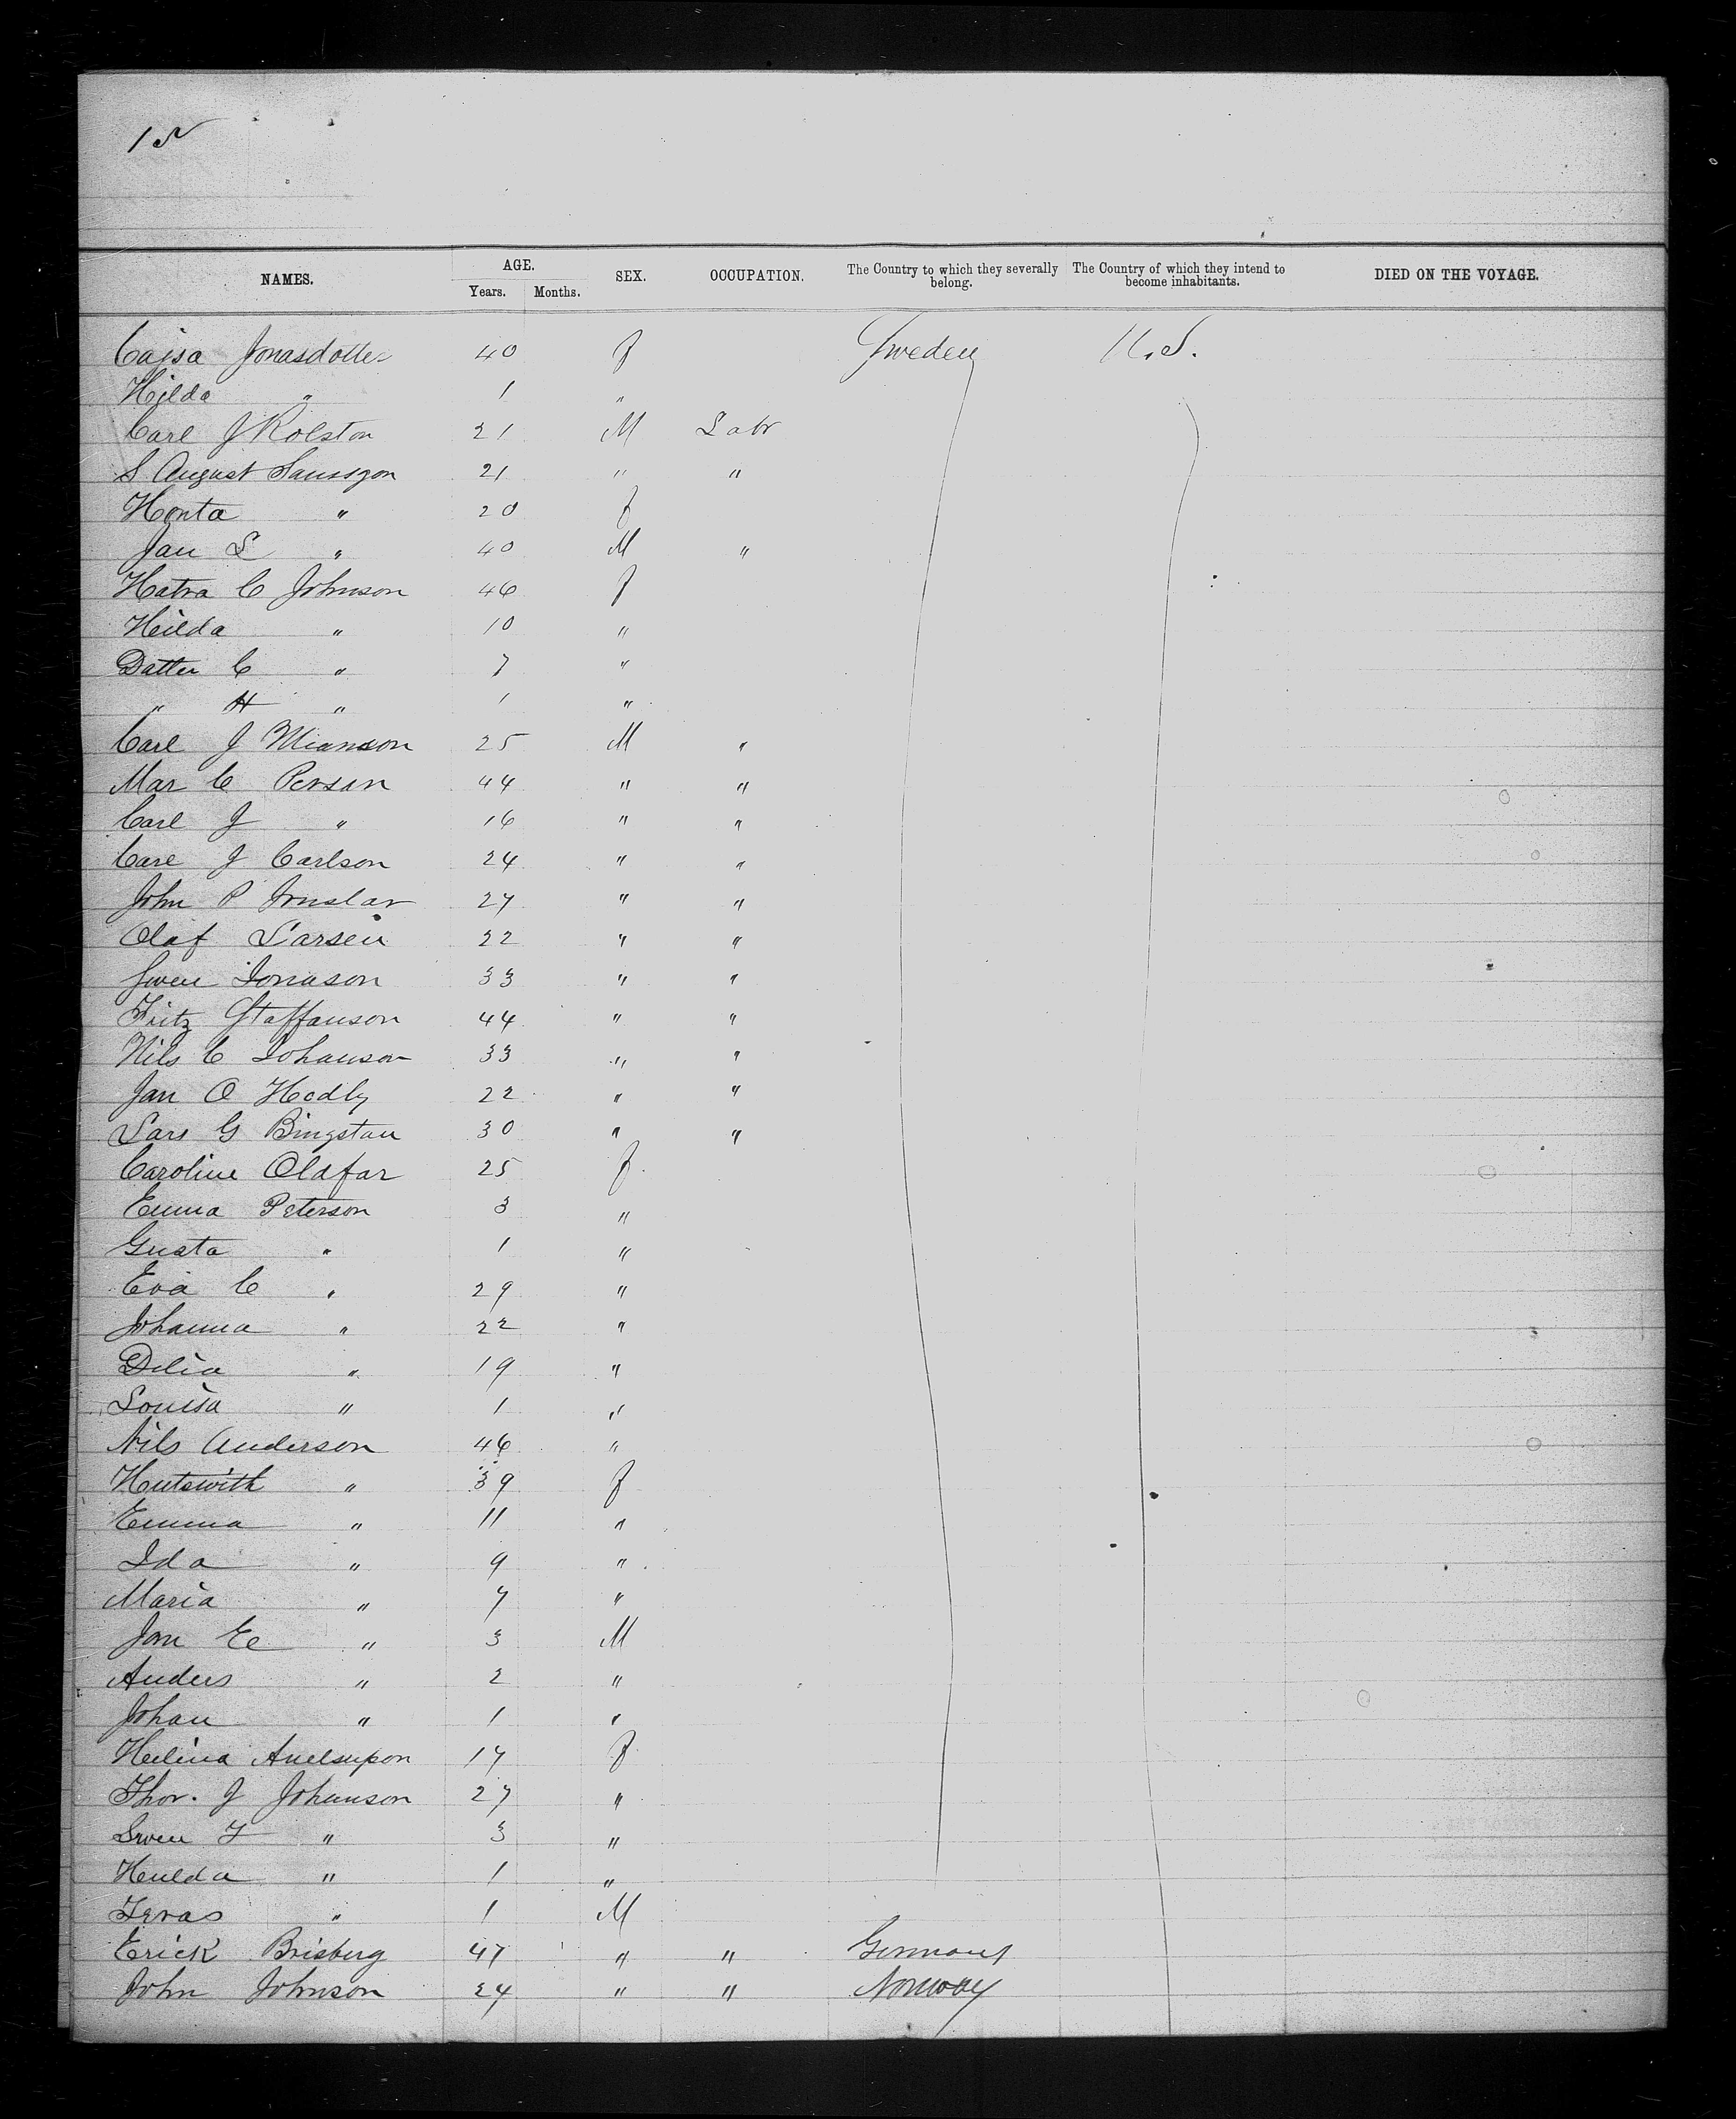 15
NAMES. AGE. Years. Months. SEX. OCCUPATION. The Country to which they severally belong. The Country of which they intend to become inhabitants. DIED ON THE VOYAGE.
Cajsa Jonasdotter 40 f Sweden U.S.
Hilda " 1 "
Carl J Rolston 21 M Labr
S August 21 " "
Honta " 20 f
Jan L " 40 M "
Hatra C Johnson 46 f
Heilda " 10 "
Datter C " 7 "
" H " 1 "
Carl J 25 M "
Mar C Person 44 " "
Carl J " 16 " "
Carl J Carlson 24 " "
John P 27 " "
Olaf Larsen 22 " "
Swen Jonason 33 " "
Fritz Staffanson 44 " "
Nils C Johanson 33 " "
Jan O Hedly 22 " "
Lars G Bingstan 30 " "
Caroline Olafar 25 f
Emma Peterson 3 "
Gusta " 1 "
Eva C " 29 "
Johanna " 22 "
Delia " 19 "
Louisa " 1 "
Nils Anderson 46 "
" 39 f
Emma " 11 "
Ida " 9 "
Maria " 7 "
Jon Ee " 3 M
Anders " 2 "
Johan " 1 "
Helina 17 f
Thor. J Johanson 27 "
Swen F " 3 "
Heulda " 1 "
" 1 M
Erick Brisberg 47 " " Germany
John Johnson 24 " " Norway